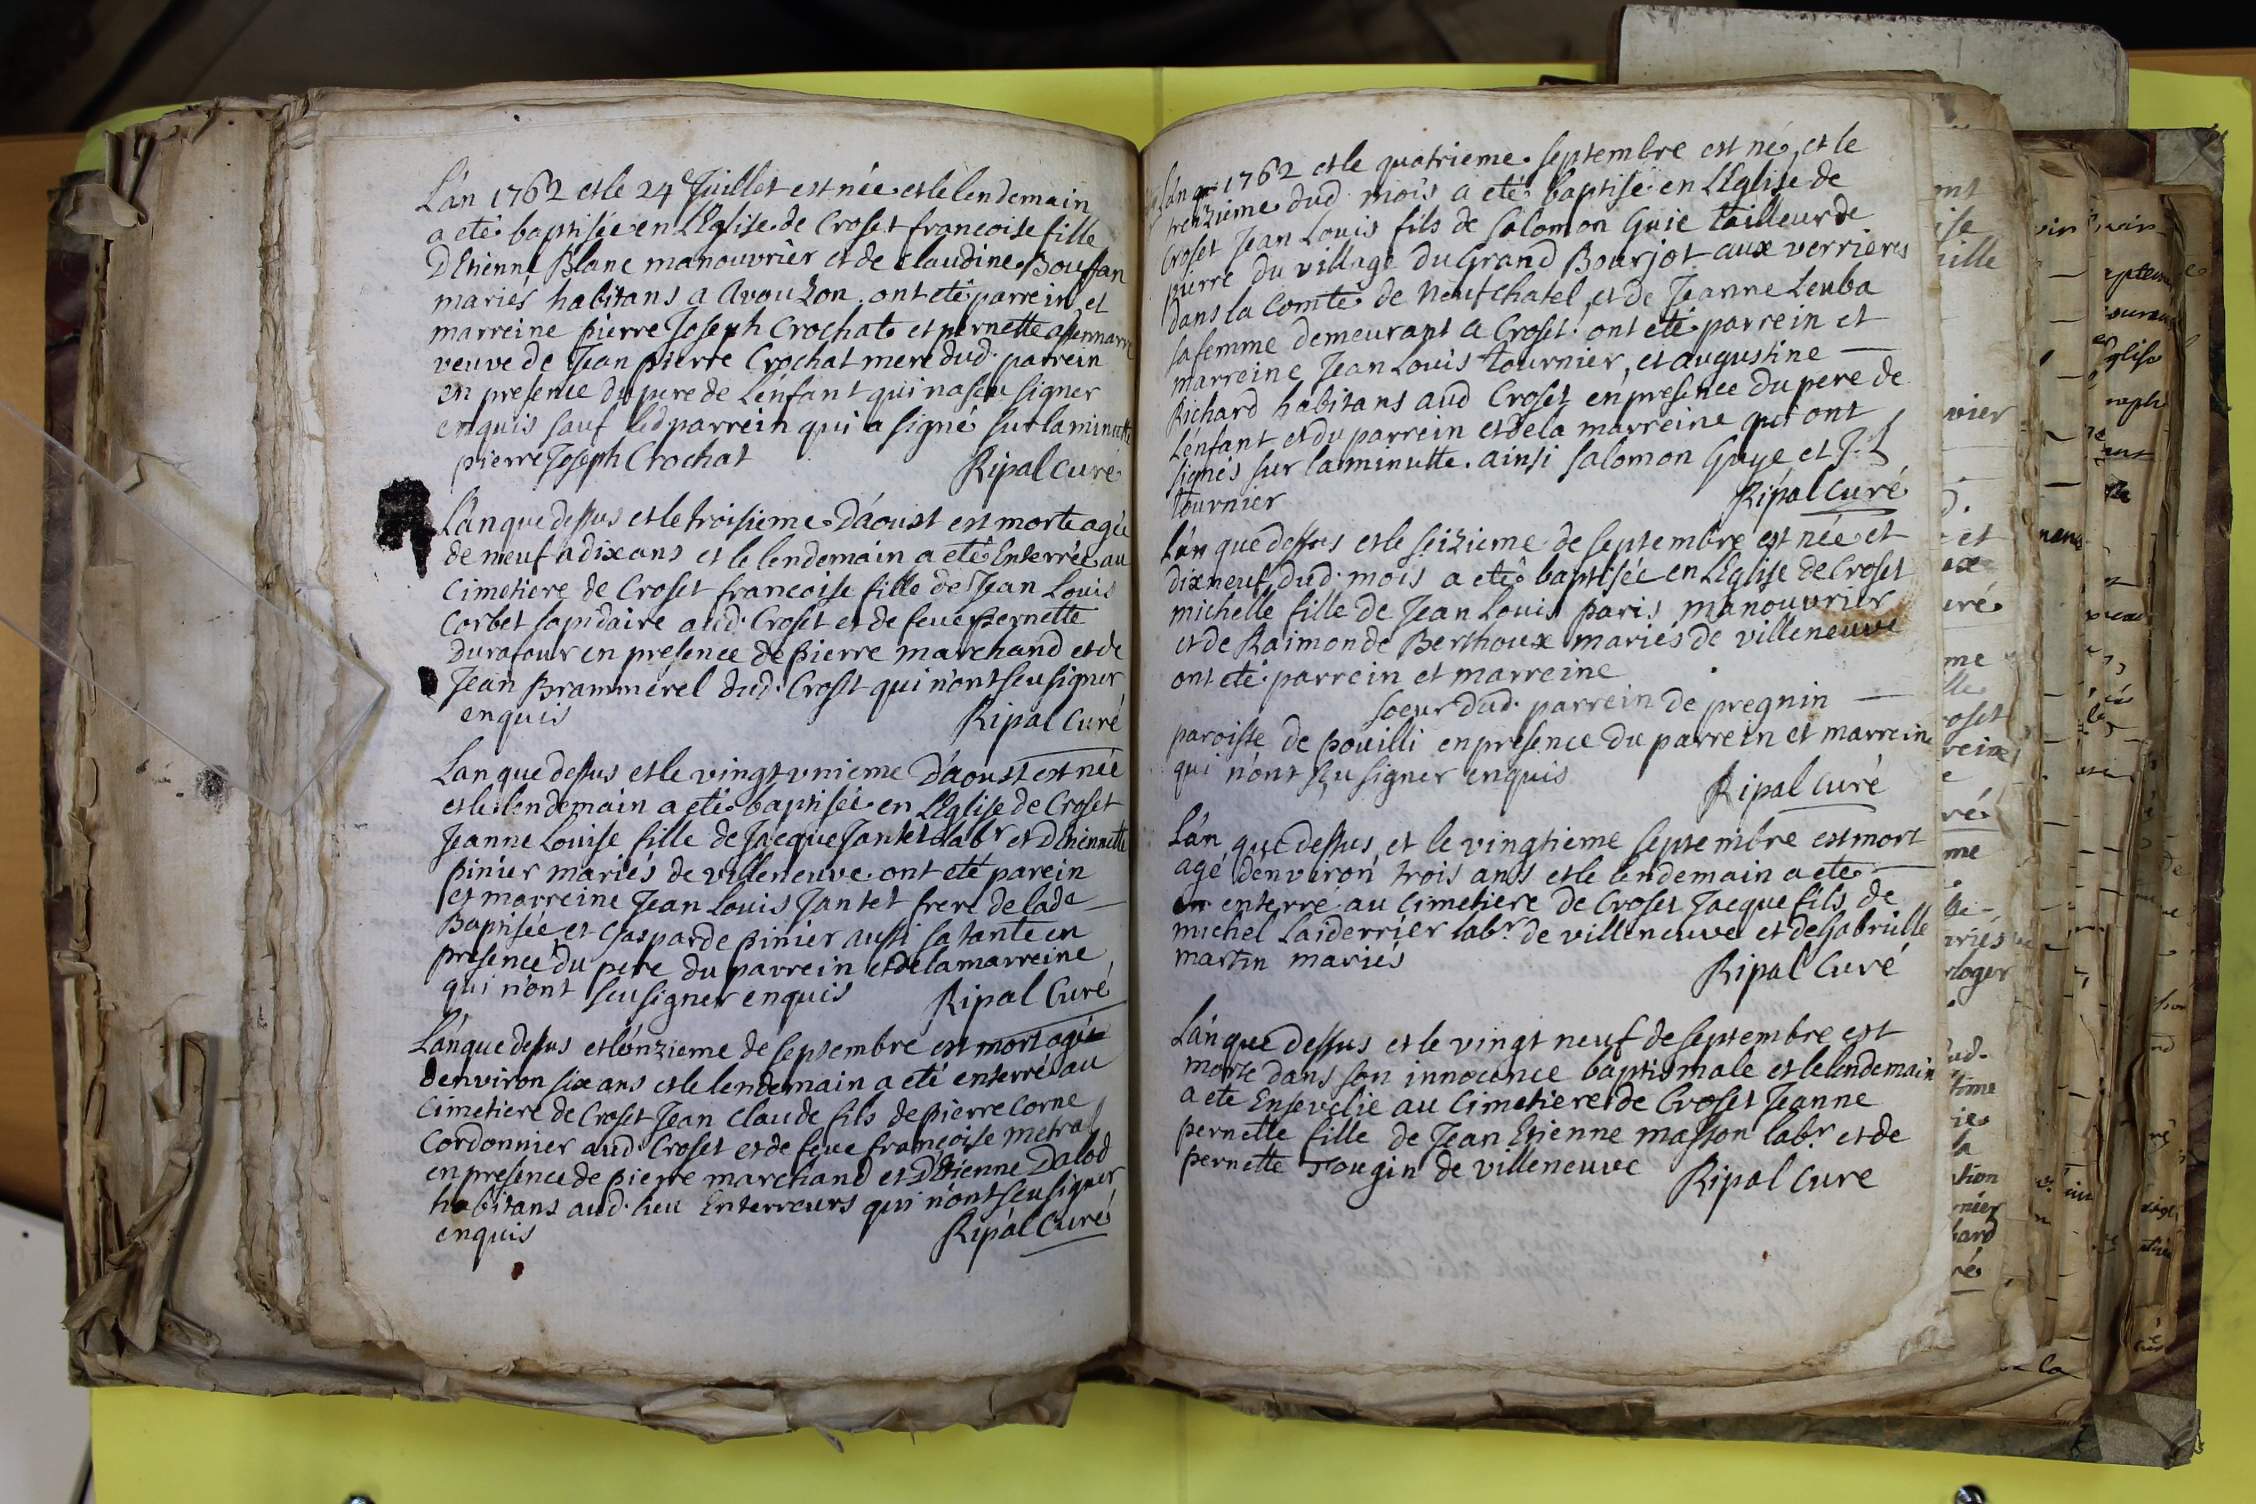 L'an 1762 et le 24 Juillet est née et le lendemain
a eté baptisée en L'Eglise de Croset francoise fille
D'Etienne Blanc manouvrier et de claudine Bouffan
mariés habitans a Avouzon. ont eté parrein et
marreine pierre Joseph Crochat et pernette
veuve de Jean pierre Crochat mere dud. parrein
en presence du pere de L'enfant qui n'a sceu signer
enquis sauf led parrein qui a signé sur la minutte
pierre Joseph Crochat Ripal Curé
L'an que dessus et le troisieme D'aoust est morte agée
de neuf a dix ans et le lendemain a eté Enterrée au
Cimetiere de Croset francoise fille de Jean Louis
Corbet lapidaire aud. Croset et de feue pernette
Durafour en présence de pierre marchand et de
Jean Brammerel dud. Croset qui n'ont sceu signer
enquis Ripal Curé
L'an que dessus et le vingt unieme D'aoust est née
et le lendemain a eté baptisée en L'Eglise de Croset
Jeanne Louise fille de Jacque Jantet labr et D'Etiennette
pinier mariés de villeneuve ont eté parein
et marreine Jean Louis Jantet frere de lade
Baptisée et Gasparde pinier aussi sa tante en
presence du pere du parrein et de la marreine
qui n'ont sceu signer enquis Ripal Curé
L'an que dessus et l'onzieme de septembre est mort agé
d'environ six ans et le lendemain a eté enterré au
Cimetiere de Croset Jean Claude fils de pierre Corne
Cordonnier aud. Croset et de feue francoise metral
en presence de pierre marchand et D'Etienne Dalod
habitans aud. lieu Enterreurs qui n'ont sceu signer
enquis Ripal Curé
L'an 1762 et le quatrieme septembre est né, et le
treizieme dud. mois a eté baptisé en L'Eglise de
Croset Jean Louis fils de Salomon Guie tailleur de
pierre du village du Grand Bourjot aux verrieres
dans la Comté de Neufchatel, et de Jeanne Leuba
sa femme demeurant a Croset. ont eté parrein et
marreine Jean Louis tournier, et augustine
Richard habitans aud Croset en présence du pere de
L'enfant et du parrein et de la marreine qui ont
signés sur la minutte. ainsi Salomon Guye et J. L
tournier Ripal Curé
L'an que dessus et le seizieme de septembre est née et
dixneuf dud. mois a eté baptisée en L'Eglise de Croset
michelle fille de Jean Louis paris manouvrier
et de Raimonde Berthoux mariés de villeneuve
ont eté parrein et marreine
soeur dud. parrein de pregnin
paroisse de pouilli en présence du parrein et marreine
qui n'ont sçu signer enquis Ripal Curé
L'an que dessus, et le vingtieme septembre est mort
agé d'environ trois ans et le lendemain a eté
enterré au Cimetiere de Croset Jacque fils de
michel Laiderrier labr. de villeneuve et de Gabrielle
martin mariés Ripal Curé
L'an que dessus et le vingt neuf de septembre est
morte dans son innocence baptismale et le lendemain
a eté Ensevelie au Cimetiere de Croset Jeanne
pernette fille de Jean Etienne masson labr et de
pernette Tougin de villeneuve Ripal Curé